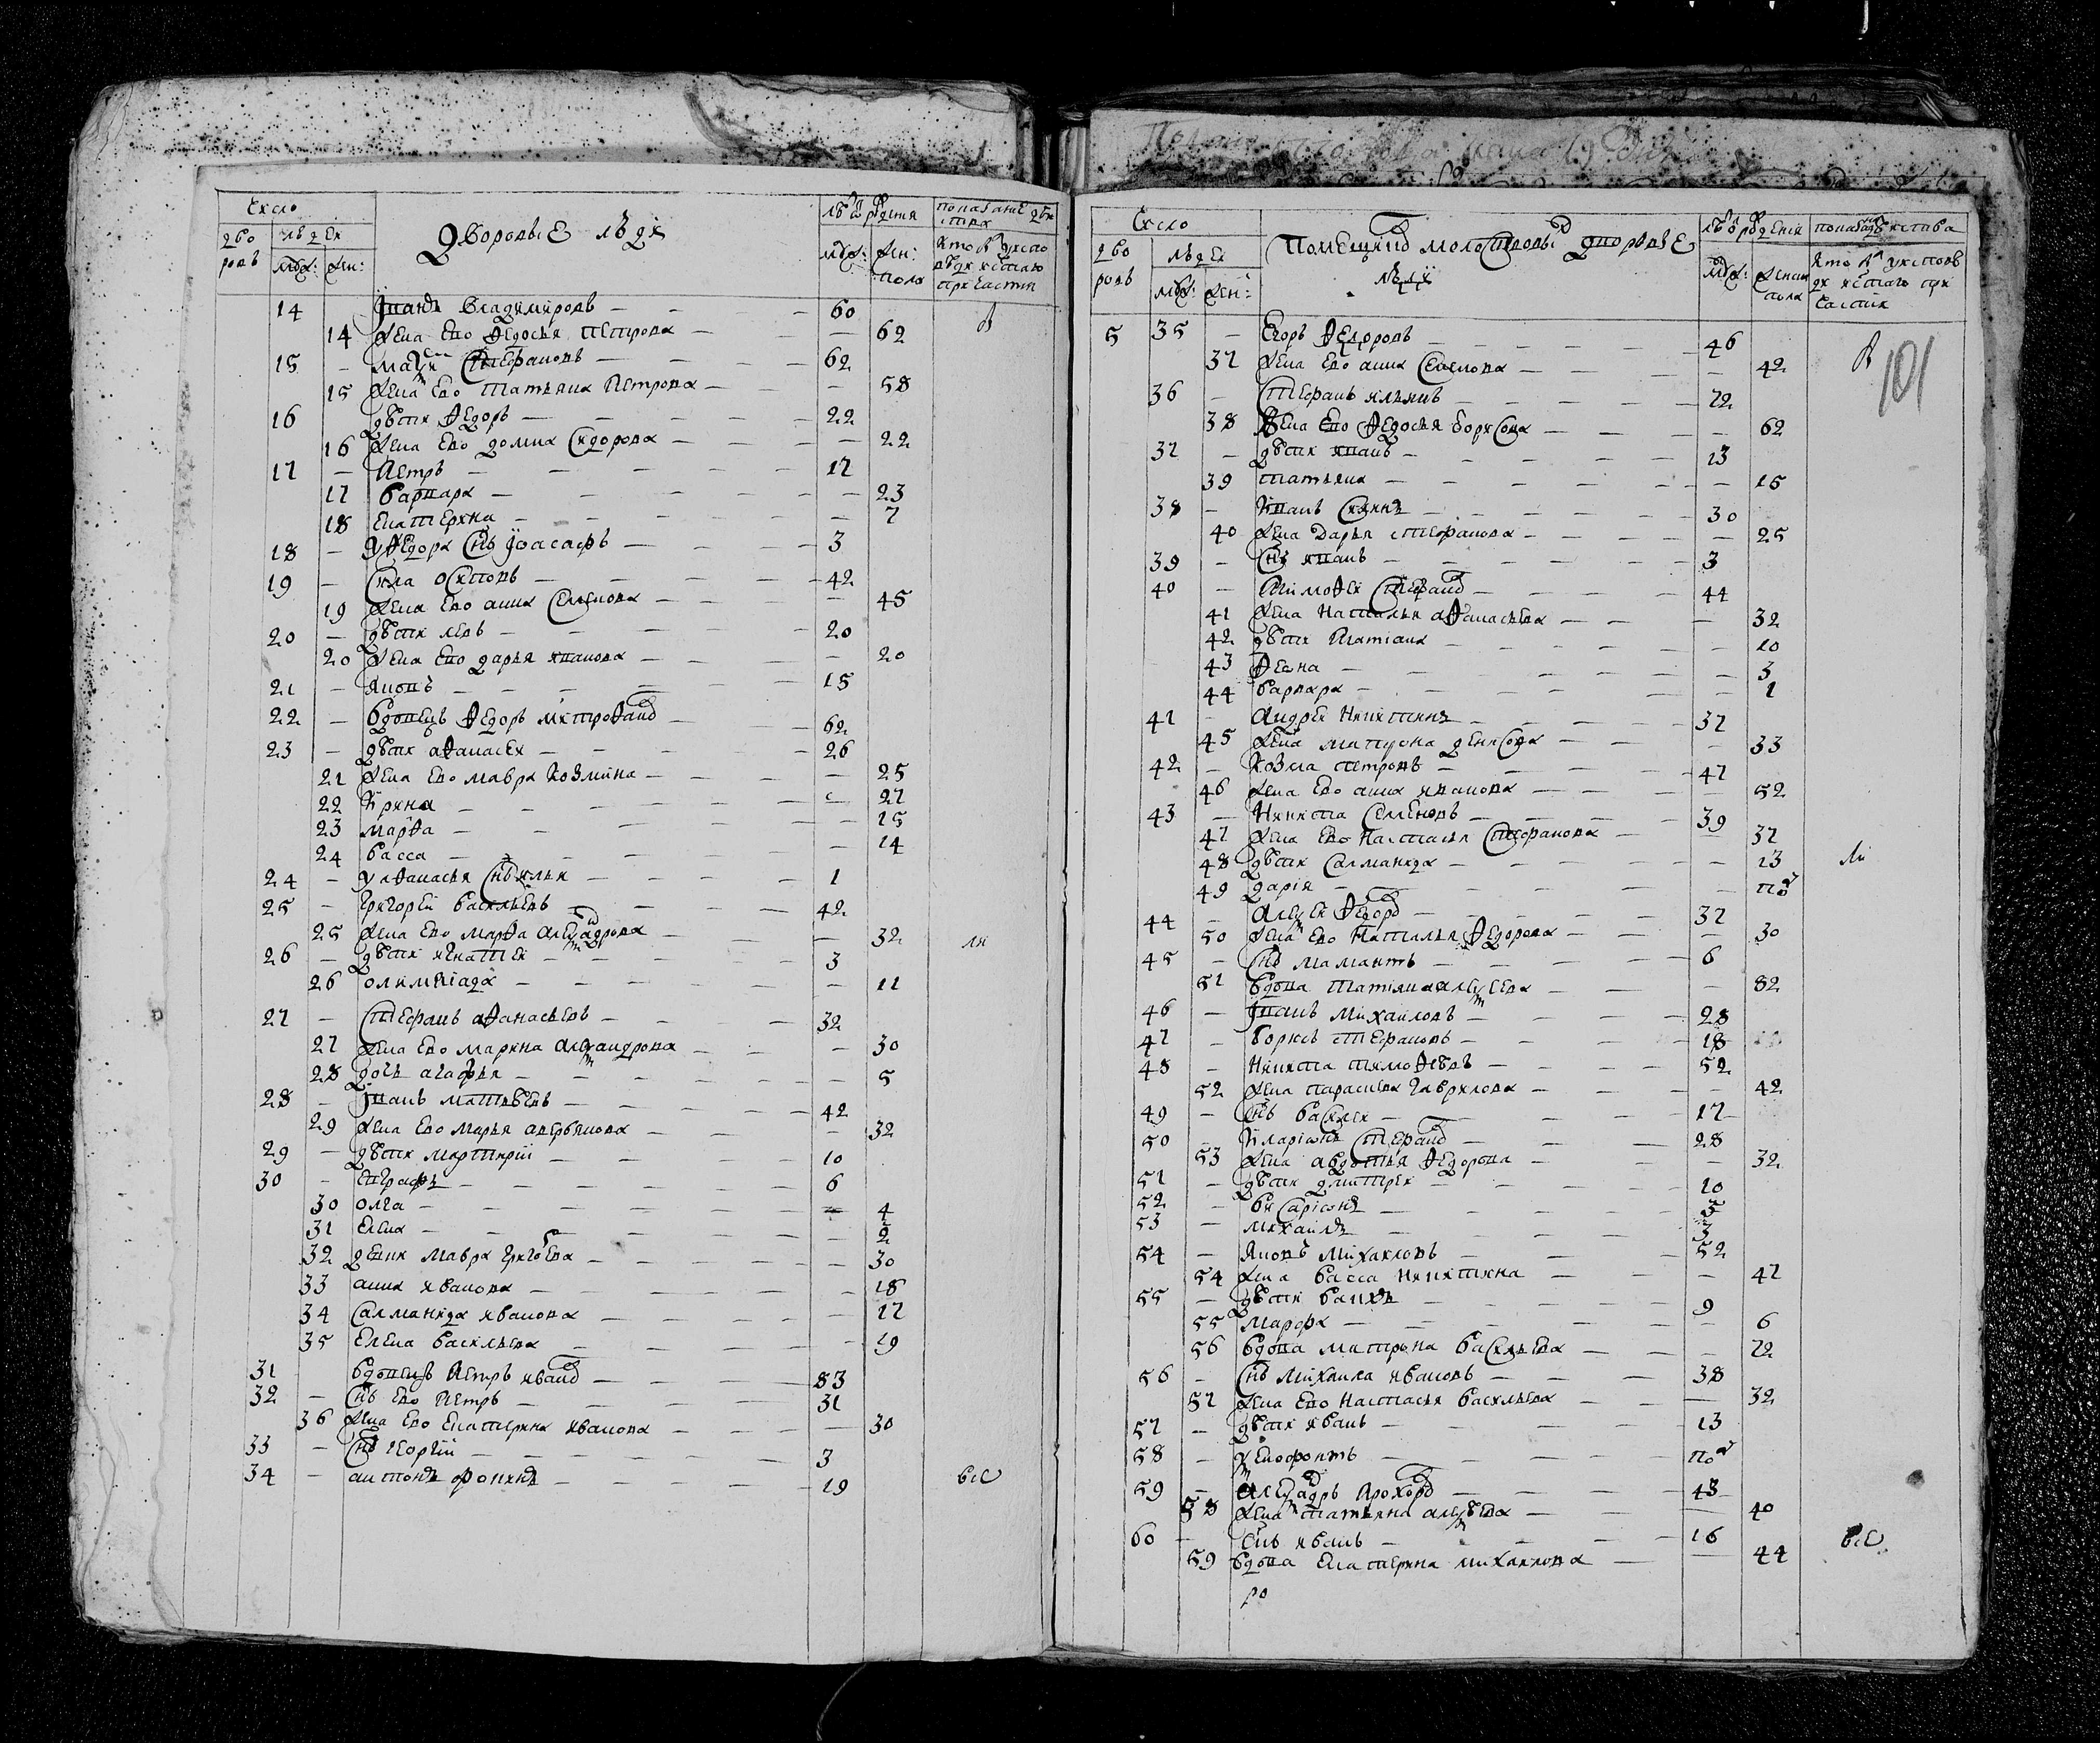 Число
дворовъ
людей
муж: жен:
Дворовые люди
лѣтъ рожденiя
муж: жен:
пола
14 Iванъ Владимировъ 60
14 жена ево Ѳедосья Петрова 62
15 Стефановъ 62
15 жена ево Татьяна Петрова 58
16 дѣти Ѳедоръ 22
16 жена ево домна Сидорова 22
17 Петръ 17
17 варвара 23
18 Екатерина 7
18 у Ѳедора снъ Iоасафъ 3
19 Сила Осиповъ 42
19 жена ево анна Семенова 45
20 дѣти левъ 20
20 жена ево дарья иванова 20
21 Яковъ 15
22 вдовецъ Ѳедоръ митроѲанов 62
23 дѣти аѲанасеи 26
21 жена ево мавра козмина 25
22 Ирина 27
23 марѲа 15
24 васса 14
24 у аѲанасья снъ илья 1
25 Григорей васильевъ 42
25 жена ево марѲа алеѯандрова 32 ли
26 дѣти игнатей 3
26 олимпiада 11
27 Стефанъ аѲанасьевъ 32
27 жена ево марина алеѯандрова 30
28 дочь агафья 5
28 Iванъ матвѣевъ 42
29 жена ево марья аверьянова 32
29 дѣти мартирiй 10
30 Евграфъ 6
30 олга 4
31 елена 2
32 девки мавра григоева 30
33 анна иванова 18
34 Саламанида иванова 17
35 Елена васильева 19
31 вдовецъ Петръ иванов 83
32 снъ ево Петръ 31
36 жена ево Екатерина иванова 30
33 снъ георгiй 3
34 антонъ фокинъ 19 всѣ
Число
дворовъ
людей
муж: жен:
Помещиков молоствовых дворовые
люди
муж: женска
пола
101
5 35 Егоръ Ѳедоровъ 46
37 жена ево анна Семенова 42
36 Стефанъ ильинъ 72
38 жена ево Ѳедосья борисова 62
37 дѣти иванъ 13
39 татьяна 15
38 Iванъ 30
40 жена дарья стефанова 25
39 снъ иванъ 3
40 ТимоѲей Стефанов 44
41 жена Наталья аѲанасьева 32
42 дѣти Татiана 10
43 Ѳекла 3
44 варвара 1
41 андрей Никитинъ 37
45 жена матрона денисова 33
42 Козма петровъ 47
46 жена ево анна иванова 52
43 Никита Семеновъ 39
47 жена ево Настасья Стефанова 37
48 дѣти Саламанида 13 ли
49 дарiя по
44 алеѯей Ѳедоров 37
50 жена ево Наталья Ѳедорова 30
45 снъ мамантъ 6
51 вдова татiяна алеѯеева 82
46 Iванъ михаиловъ 28
47 борисъ стефановъ 18
48 Никита тимоѲеевъ 52
52 жена парасковя гаврилова 42
49 снъ василеи 17
50 Иларiонъ Стефанов 28
53 жена авдотья Ѳедорова 32
51 дѣти дмитреи 10
52 виссарiонъ 5
53 михаилъ 3
54 Яковъ михаиловъ 52
54 жена васса никитина 47
55 дѣти 9
55 марфа 6
56 вдова матрона васильева 72
56 снъ михаила ивановъ 38
57 жена ево Настасья василева 32
57 дѣти иванъ 13
58 ѯенофонтъ по
59 алеѯадръ Прохоров 43
58 жена татьяна алеѯѣева 40
60 снъ иванъ 16 всѣ
59 вдова Екатерина михаилова 44